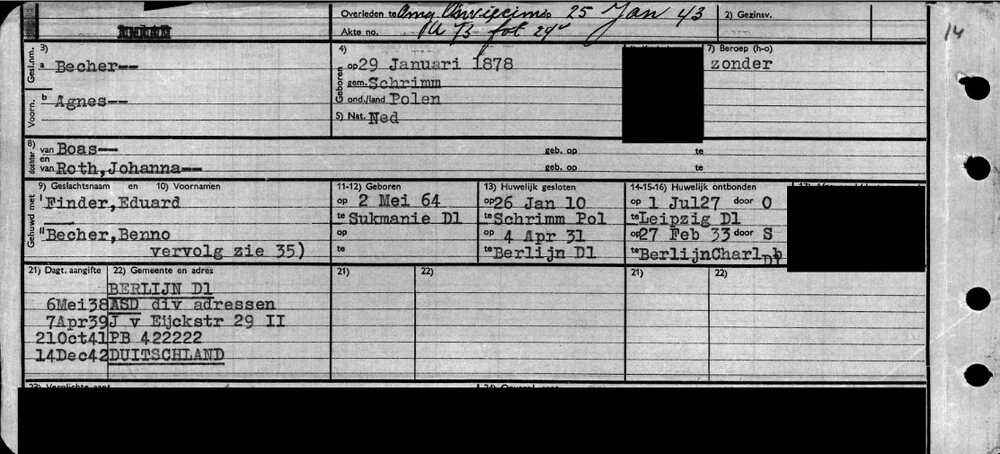 Overleden te Omg. Oswiecim op 25 Jan 43
2) Gezinsv.
Akte no. A 73 fol 29v
14
Gesl.nm. 3) a Becher--
Voorn. b Agnes--
4) Geboren op 29 Januari 1878
gem. Schrimm
ond./land Polen
5) Nat. Ned
7) Beroep (h-o)
zonder
8) dochter van Boas-- geb. op te
en van Roth,Johanna-- geb. op te
Gehuwd met 9) Geslachtsnaam en 10) Voornamen
I Finder,Eduard
II Becher,Benno
vervolg zie 35)
11-12) Geboren
op 2 Mei 64
te Sukmanie Dl
op
te
13) Huwelijk gesloten
op 26 Jan 10
te Schrimm Pol
op 4 Apr 31
te Berlijn Dl
14-15-16) Huwelijk ontbonden
op 1 Jul27 door O
te Leipzig Dl
op 27 Feb 33 door S
te BerlijnCharlb
Dl
21) Dagt. aangifte 22) Gemeente en adres 21) 22) 21) 22)
BERLIJN Dl
6Mei38 ASD div adressen
7Apr39 J v Eijckstr 29 II
21Oct41 PB 422222
14Dec42 DUITSCHLAND